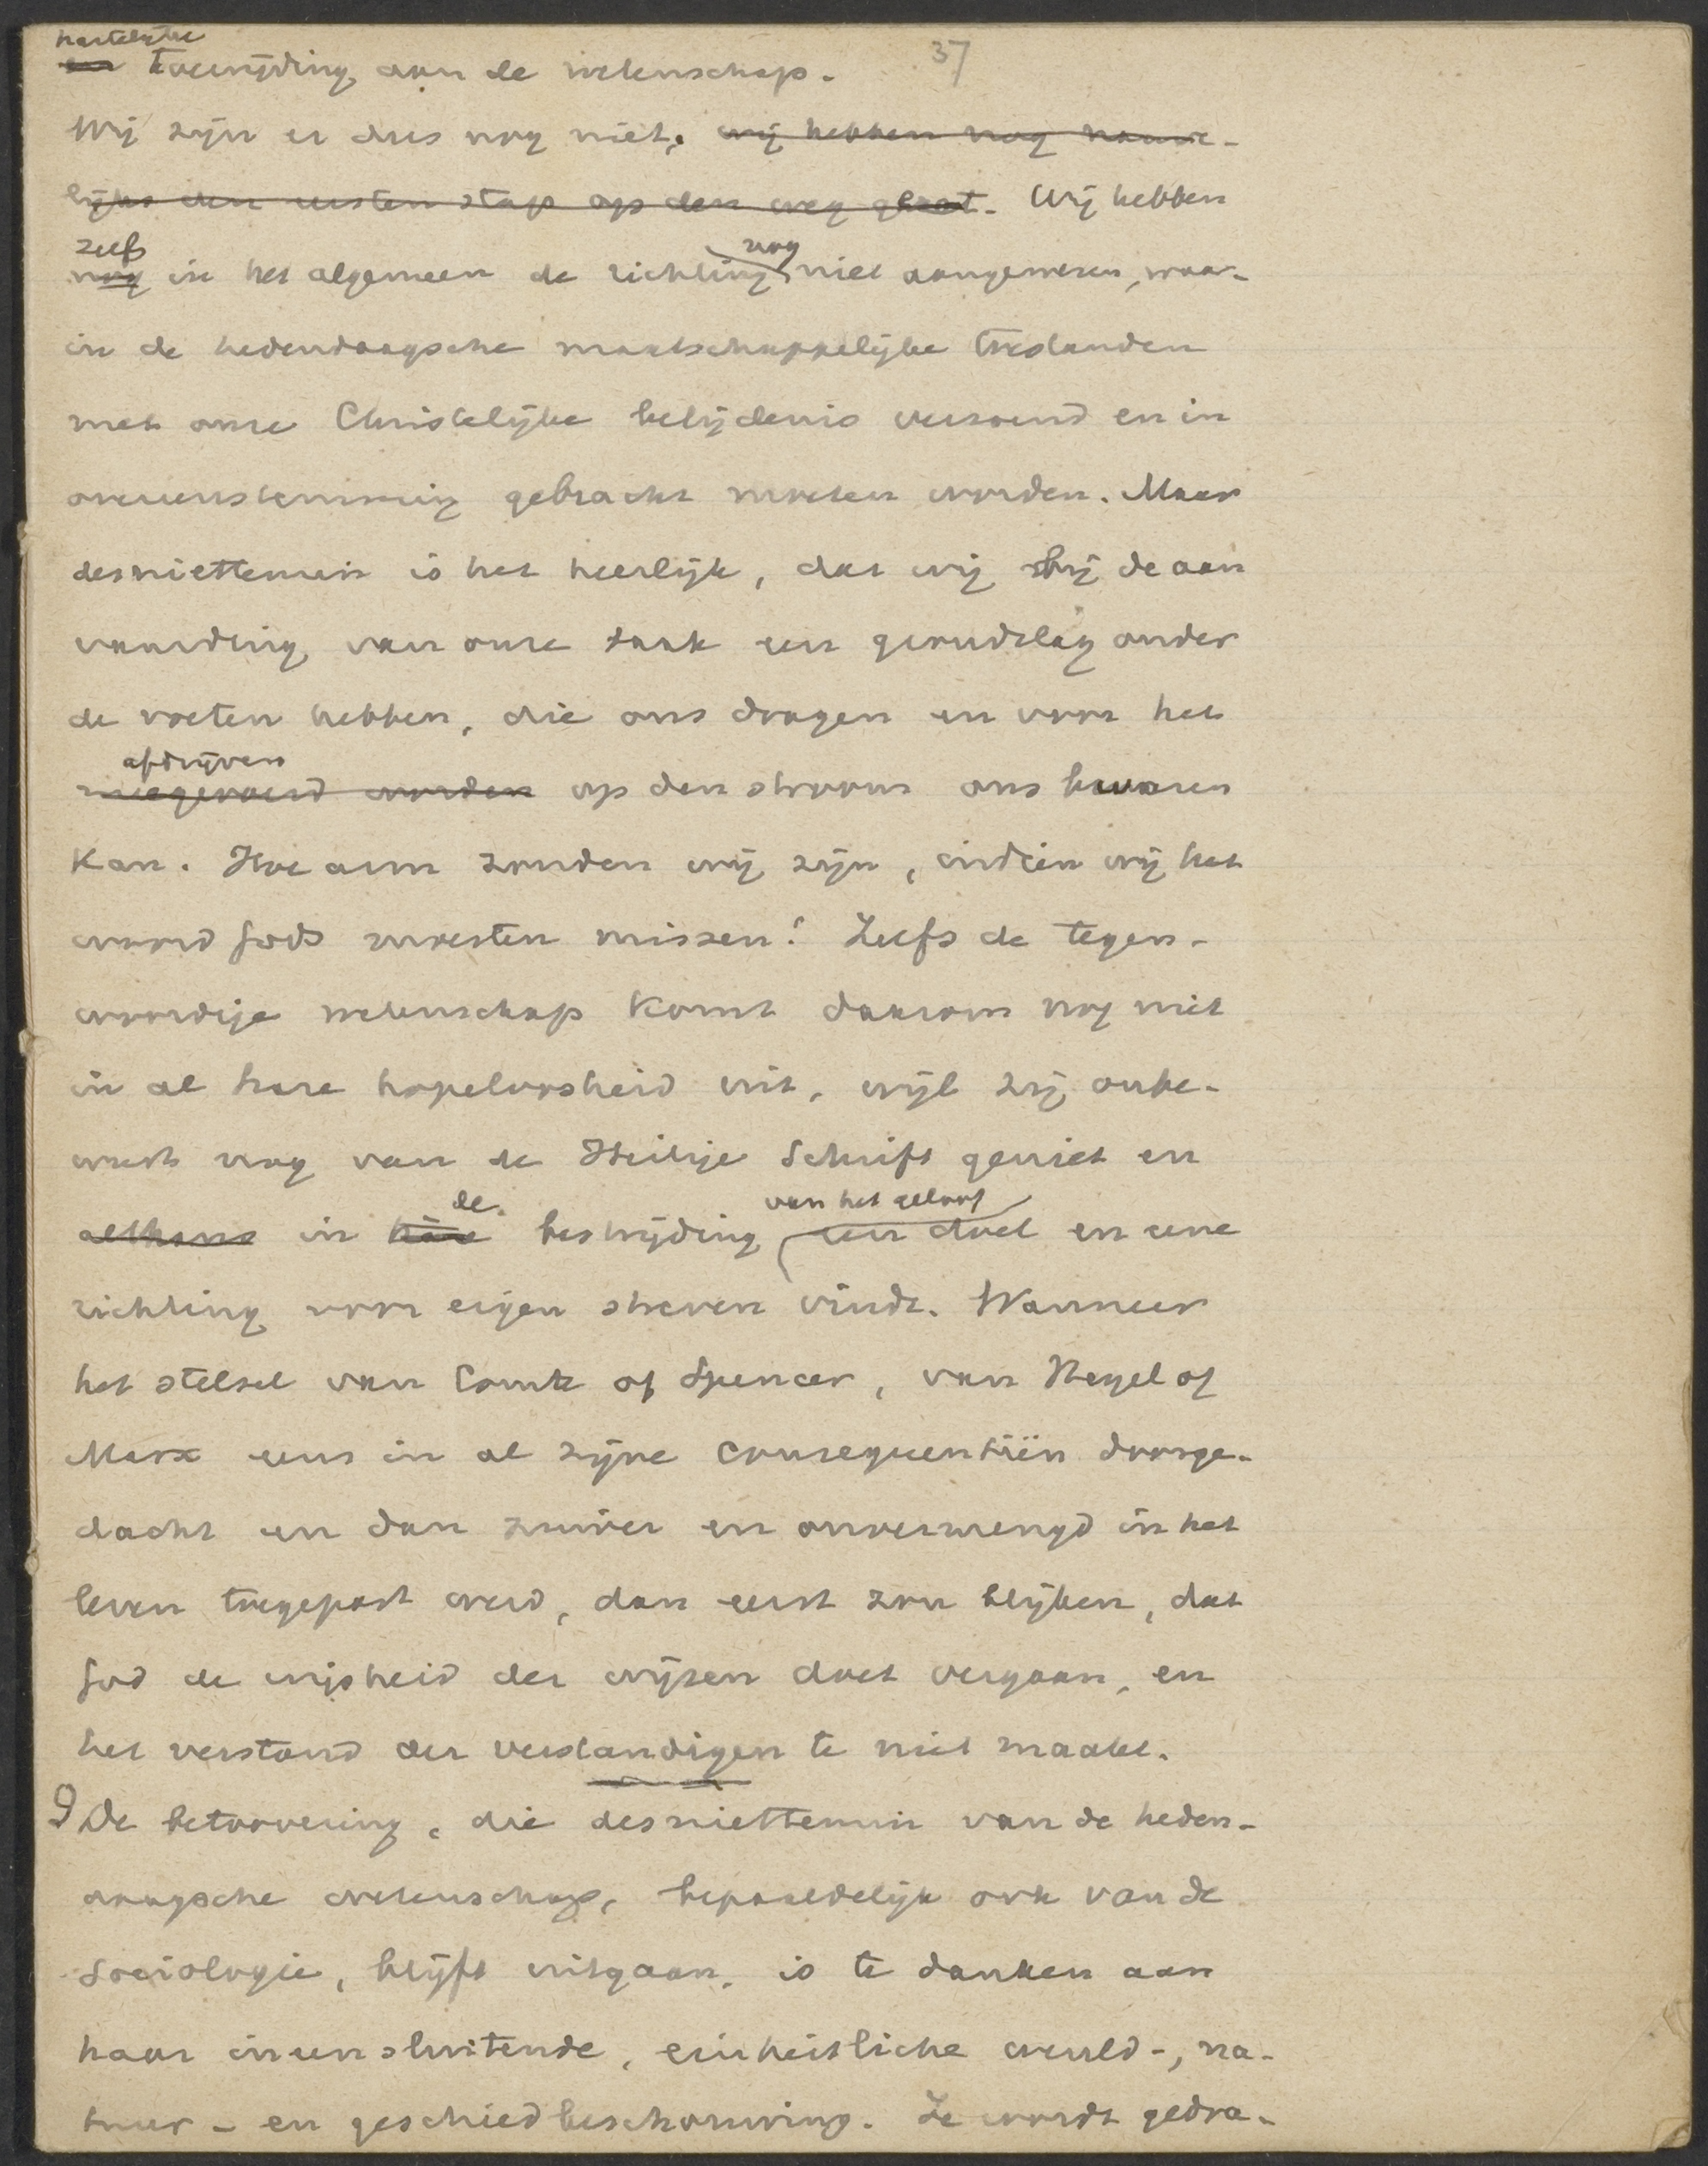 hartelijke
en toewijding aan de wetenschap.
37
Wij zijn er dus nog niet; wij hebben nog nauwe-
lijks den eersten stap op den weg gezet. Wij hebben
zelfs nog
nog in het algemeen de richting niet aangewezen, waar-
in de hedendaagsche maatschappelijke toestanden
met onze Christelijke belijdenis verzoend en in
overeenstemming gebracht moeten worden. Maar
desniettemin is het heerlijk, dat wij bij de aan
vaarding van onze taak een grondslag onder
de voeten hebben, die ons dragen en voor het
afdrijven
meegevoerd worden op den stroom ons bewaren
kan. Hoe arm zouden wij zijn, indien wij het
woord Gods moesten missen! Zelfs de tegen-
woordige wetenschap komt daarom nog niet
in al hare hopeloosheid uit, wijl zij onbe-
wust nog van de Heilige Schrift geniet en
de van het geloof
althans in hare bestrijding een doel en eene
richting voor eigen streven vindt. Wanneer
het stelsel van Comte of Spencer, van Hegel of
Marx eens in al zijne consequentiën doorge-
dacht en dan zuiver en onvermengd in het
leven toegepast werd, dan eerst zou blijken, dat
God de wijsheid der wijzen doet vergaan, en
het verstand der verstandigen te niet maakt.
9 De betoovering, die desniettemin van de heden-
daagsche wetenschap, bepaaldelijk ook van de
sociologie, blijft uitgaan, is te danken aan
haar ineensluitende, einheitliche wereld-, na-
tuur- en geschiedbeschouwing. Ze wordt gedra-